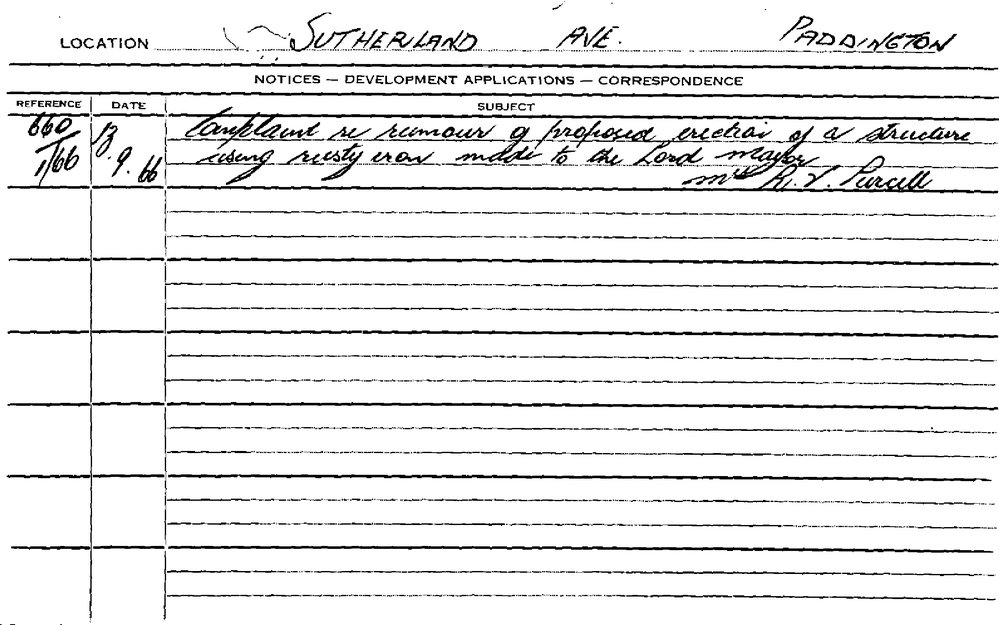 LOCATION SUTHERLAND AVE. PADDINGTON
NOTICES — DEVELOPMENT APPLICATIONS — CORRESPONDENCE
REFERENCE DATE SUBJECT
660/1/66 13.9.66 Complaint re rumour of proposed erection of a structure
using rusty iron made to the Lord Mayor
Mrs R. V. Purcell